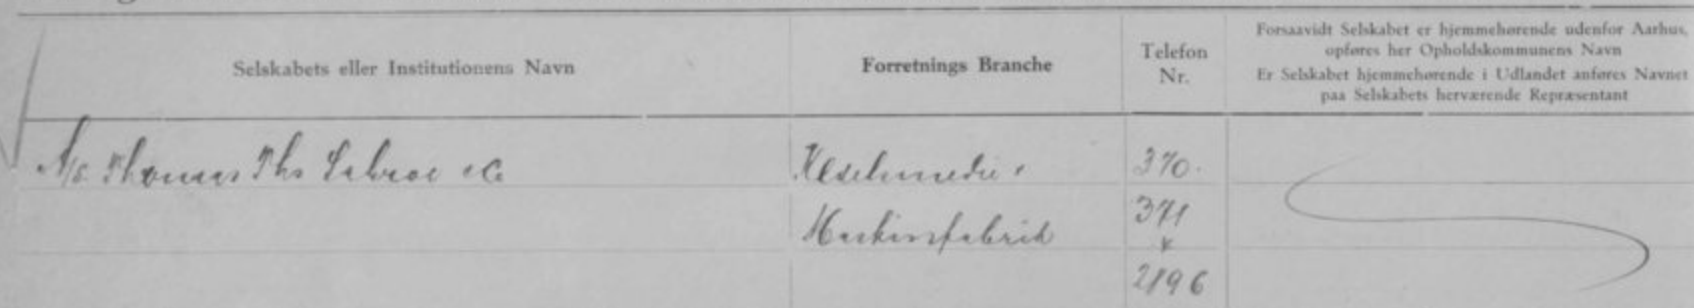 Selskabets eller Institutionens Navn
Forretnings Branche
Telefon
Nr.
Forsaavidt Selskabet er hjemmehørende udenfor Aarhus,
opføres her Opholdskommunens Navn
Er Selskabet hjemmehørende i Udlandet anføres Navnet
paa Selskabets herværende Repræsentant
A/S Thomas Ths Sabroe & Co
Klejnsmedie &
Maskinfabrik
370.
371
&
2196